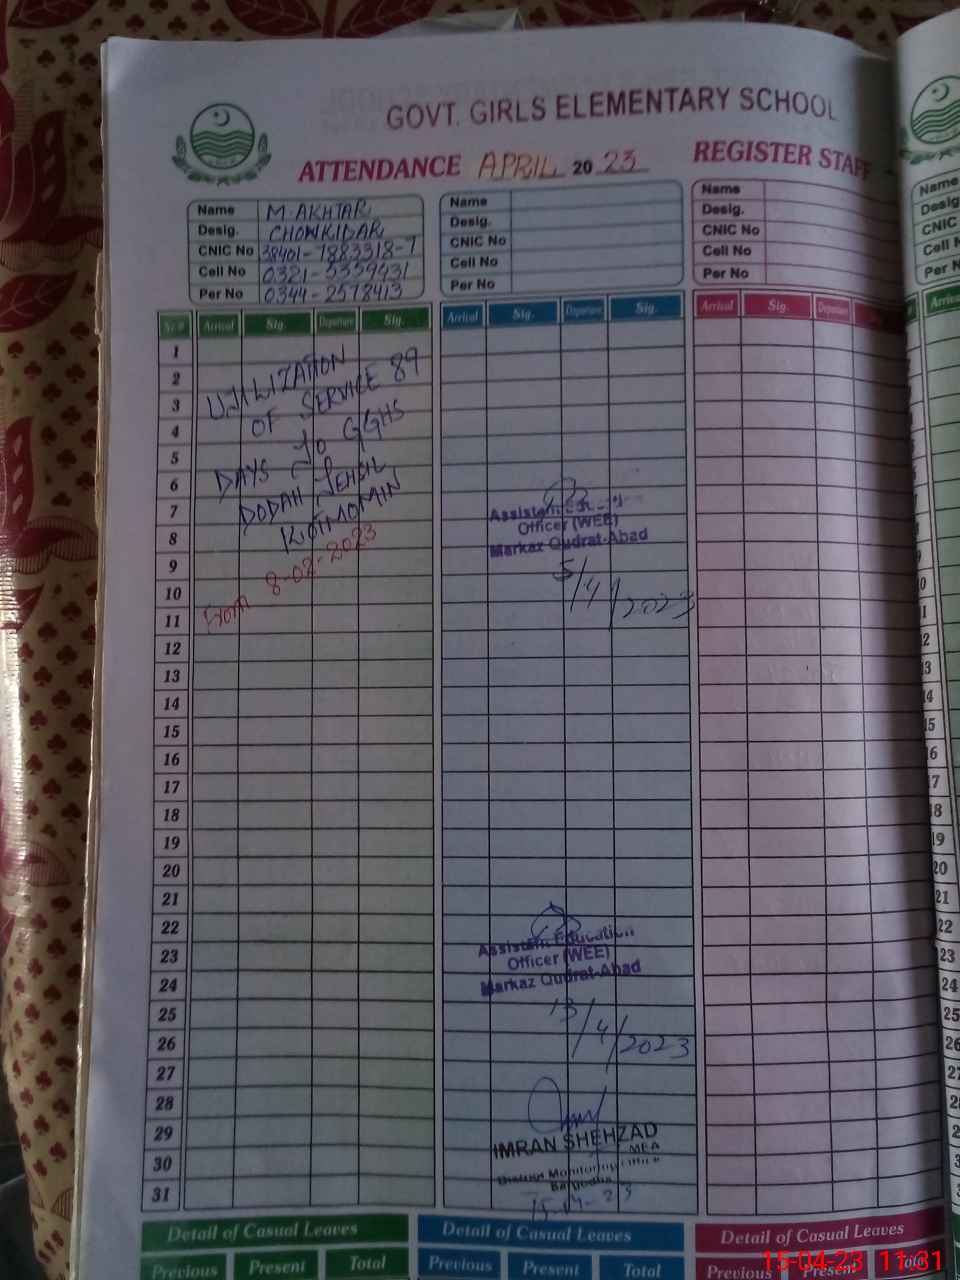 GOVT. GIRLS ELEMENTARY SCHOOL
ATTENDANCE APRIL 2023 REGISTER STAFF
Name M. AKHTAR
Desig. CHOWKIDAR
CNIC No 38401-7883318-7
Cell No 0321-5359431
Per No 0344-2578413
Name
Desig.
CNIC No
Cell No
Per No
Name
Desig.
CNIC No
Cell No
Per No
Sr.# Arrival Sig. Departure Sig.
Arrival Sig. Departure Sig.
Arrival Sig. Departure
1
2
3
4
5
6
7
8
9
10
11
12
13
14
15
16
17
18
19
20
21
22
23
24
25
26
27
28
29
30
31
UTILIZATION
OF SERVICE 89
DAYS TO GGHS
DODAH TEHSIL
KOTMOMIN
From 8-02-2023
Assistant
Officer (WEE)
Markaz Qudrat-Abad
5/4/2023
Assistant Education
Officer (WEE)
Markaz Qudrat-Abad
13/4/2023
IMRAN SHEHZAD
MEA
District Monitoring Office
Sargodha
15-04-23
Detail of Casual Leaves
Previous Present Total
Detail of Casual Leaves
Previous Present Total
Detail of Casual Leaves
Previous Present Total
Name
Desig
CNIC
Cell N
Per N
Arriva
15-04-23 11:31